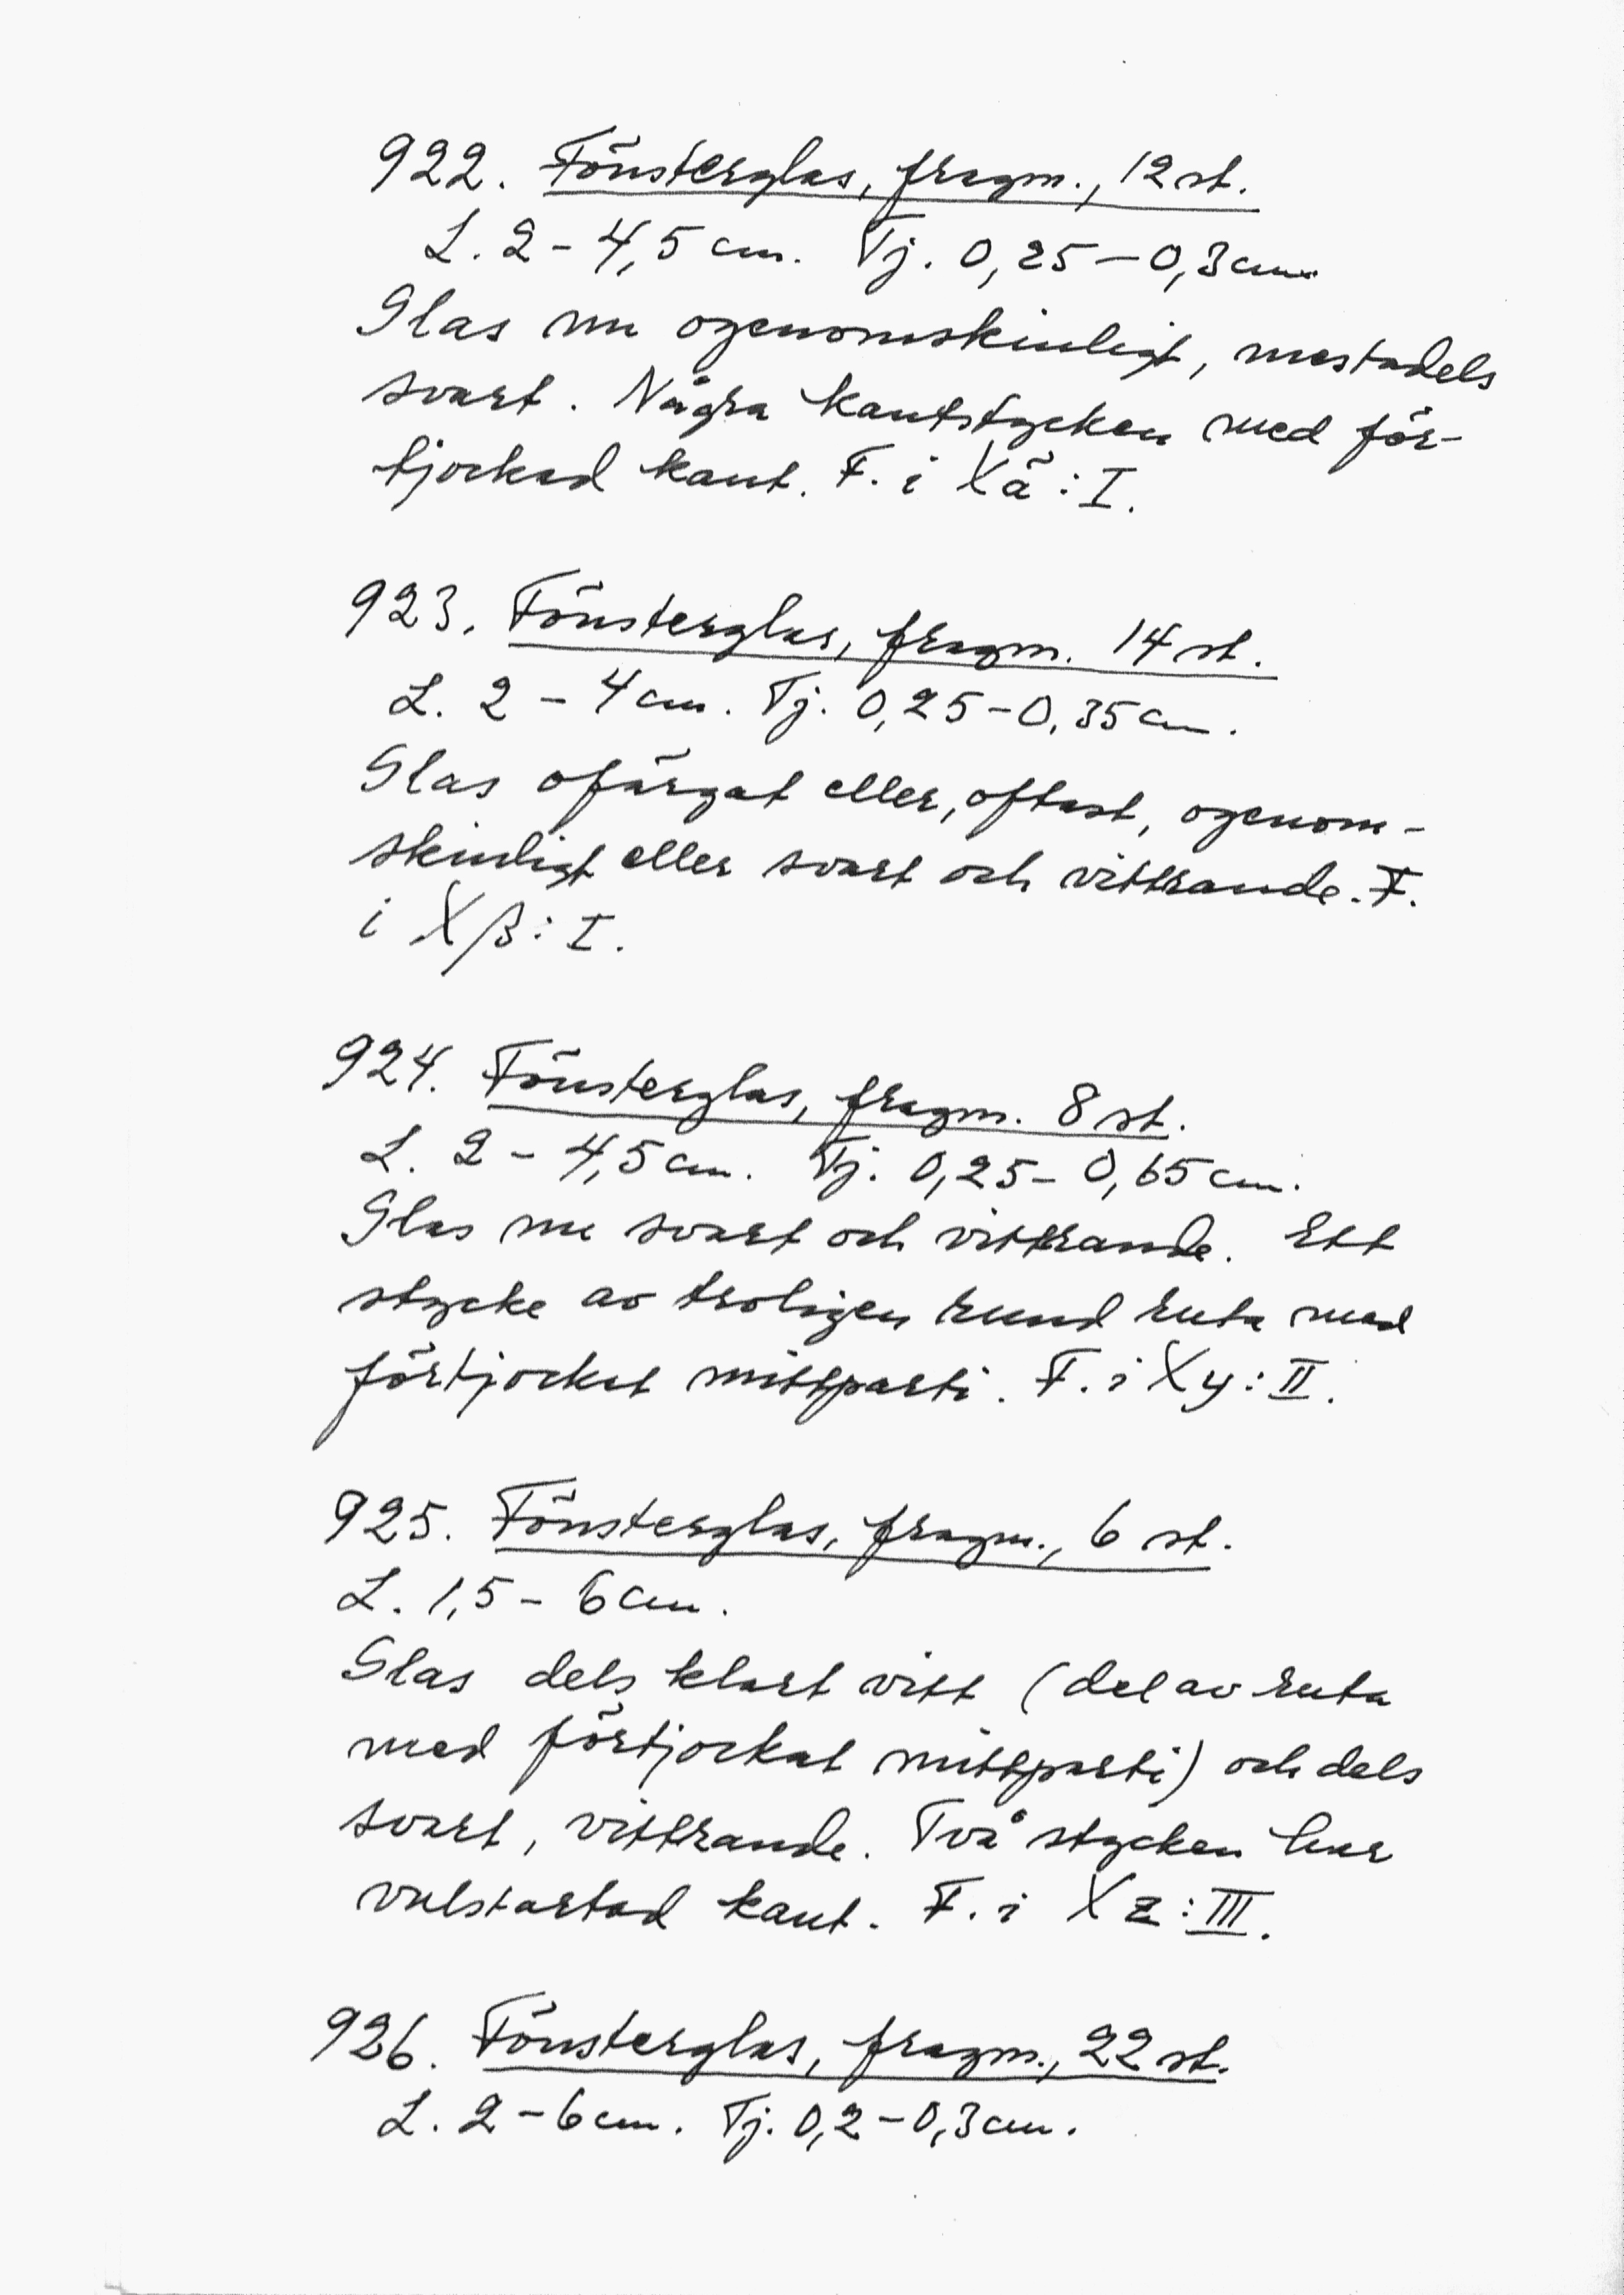 922. Fönsterglas, fragm., 12 st.
L. 2 - 4,5 cm. Tj. 0,25 - 0,3 cm.
Glas nu ogenomskinligt, mestadels
svart. Några kantstycken med för-
tjockad kant. F. i Xä : I.
923. Fönsterglas, fragm. 14 st.
L. 2 - 4 cm. Tj. 0,25 - 0,35 cm.
Glas ofärgat eller, oftast, ogenom-
skinligt eller svart och vittrande. F.
i Xβ : I.
924. Fönsterglas, fragm. 8 st.
L. 2 - 4,5 cm. Tj. 0,25 - 0,65 cm.
Glas nu svart och vittrande. Ett
stycke av troligen rund ruta med
förtjockat mittparti. F. i Xy : II.
925. Fönsterglas, fragm., 6 st.
L. 1,5 - 6 cm.
Glas dels klart vitt (del av ruta
med förtjockat mittparti) och dels
svart, vittrande. Två stycken har
vulstartad kant. F. i Xz : III.
926. Fönsterglas, fragm., 22 st.
L. 2 - 6 cm. Tj. 0,2 - 0,3 cm.